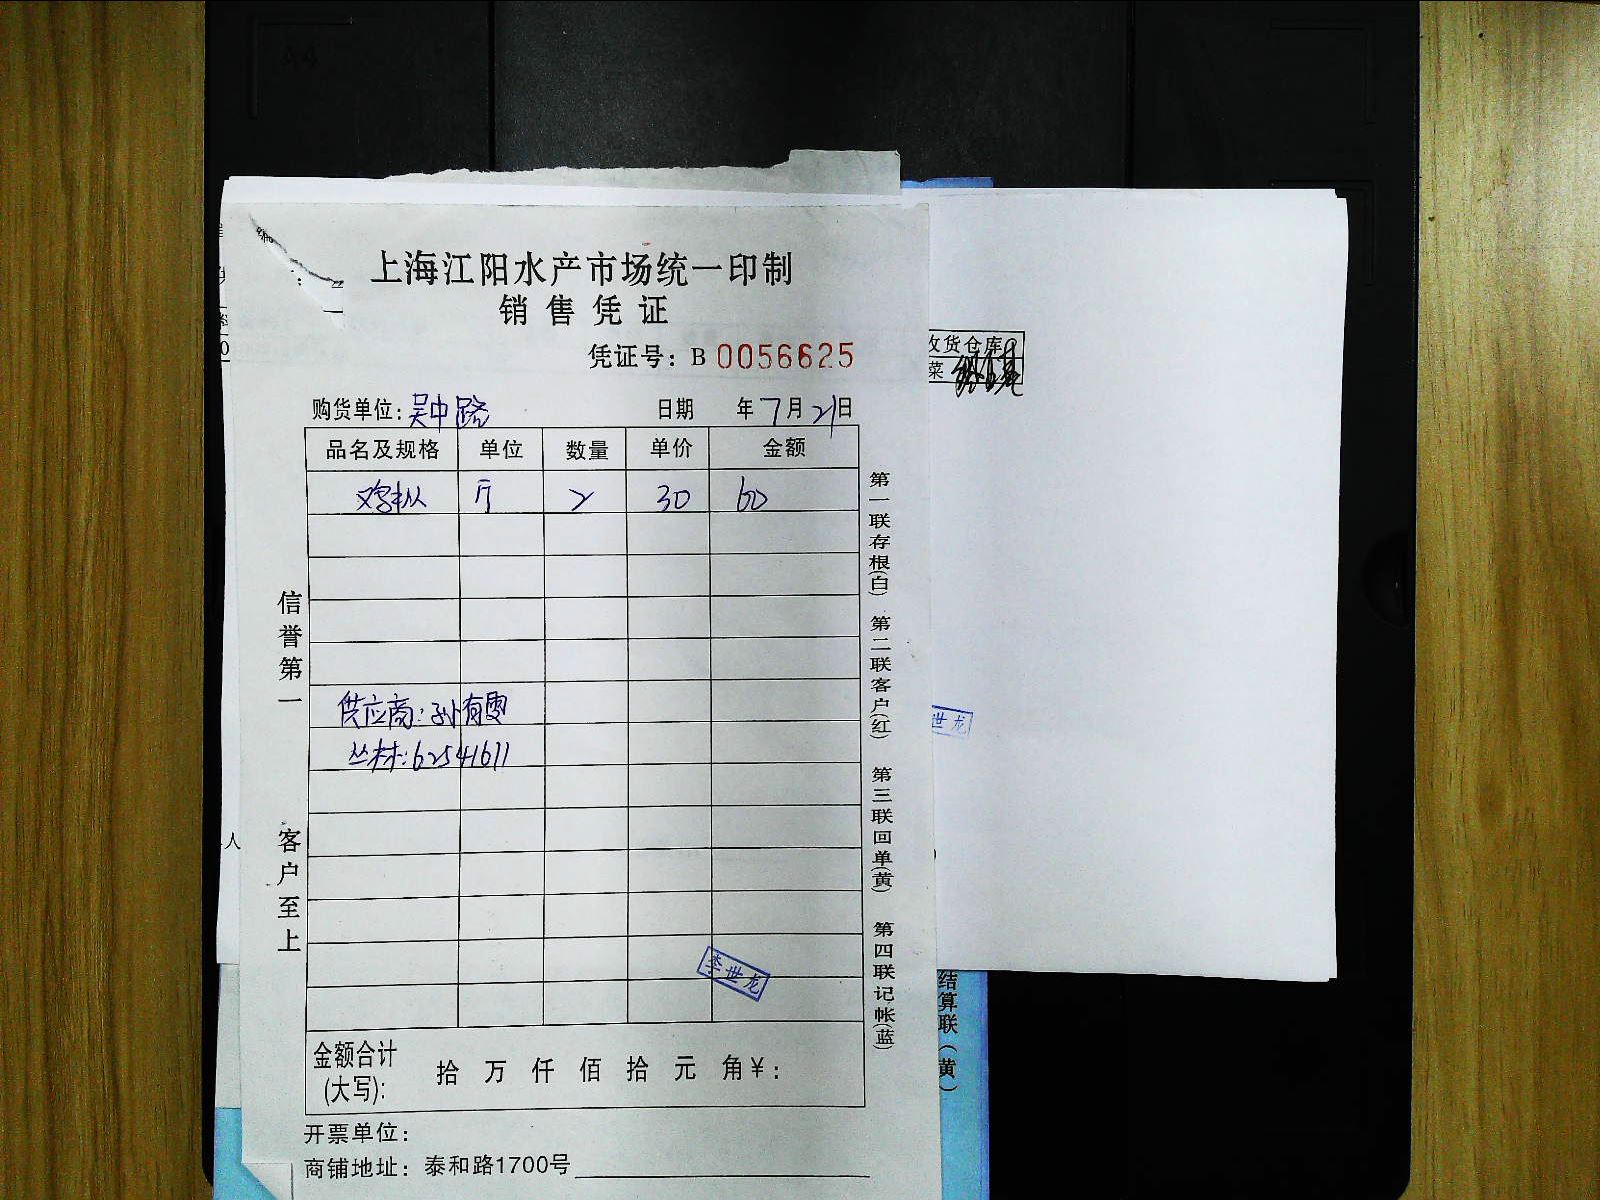 上海江阳水产市场统一印制
销售凭证
凭证号：B 0056625
购货单位：吴中路 日期 年7月21日
品名及规格 单位 数量 单价 金额
鸡枞 斤 2 30 60
供应商：孙有雯
丛林：62541611
李世龙
金额合计(大写)： 拾 万 仟 佰 拾 元 角 ¥：
开票单位：
商铺地址：泰和路1700号
信誉第一
客户至上
第一联存根(白) 第二联客户(红) 第三联回单(黄) 第四联记帐(蓝)
收货仓库
菜
世龙
结算联（黄）
人
编